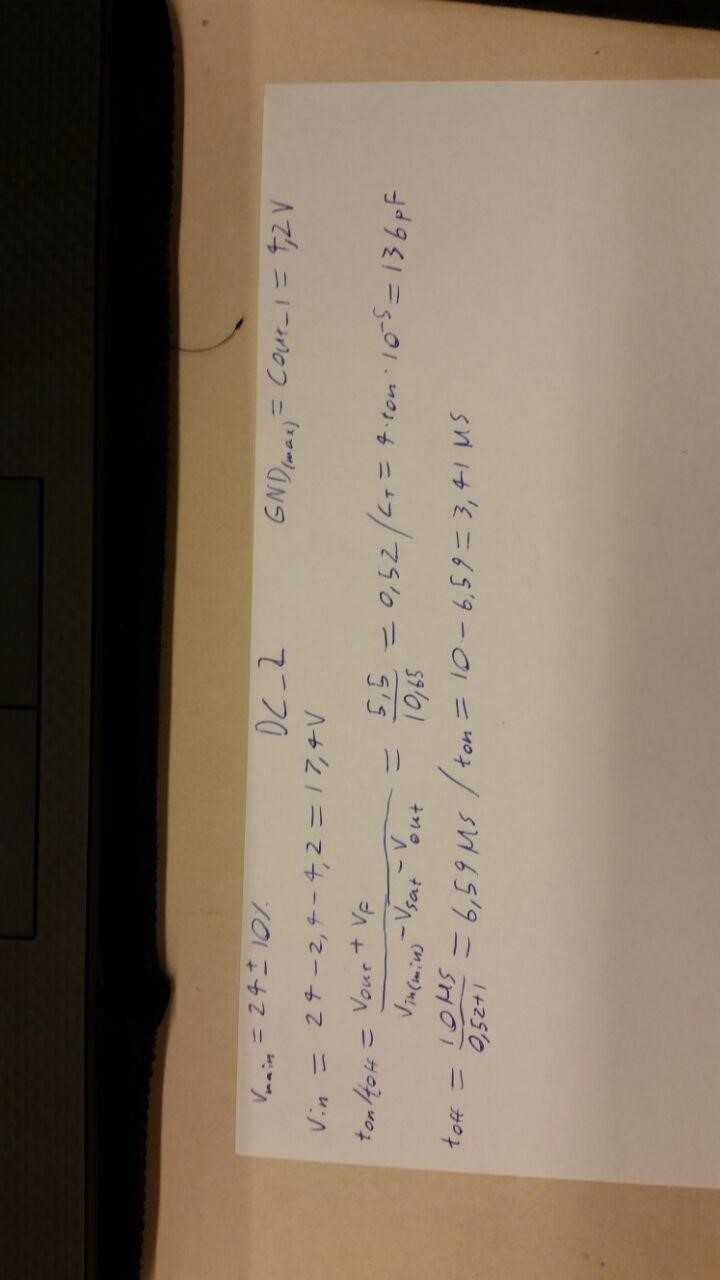 Vmain = 24 ± 10% DC-2 GND(max) = Cout-1 = 4,2V
Vin = 24 - 2,4 - 4,2 = 17,4V
ton/toff = Vout + VF / Vin(min) - Vsat - Vout = 5,5 / 10,65 = 0,52 / CT = 4·ton·10⁻⁵ = 136pF
toff = 10μs / 0,52+1 = 6,59μs / ton = 10 - 6,59 = 3,41μs